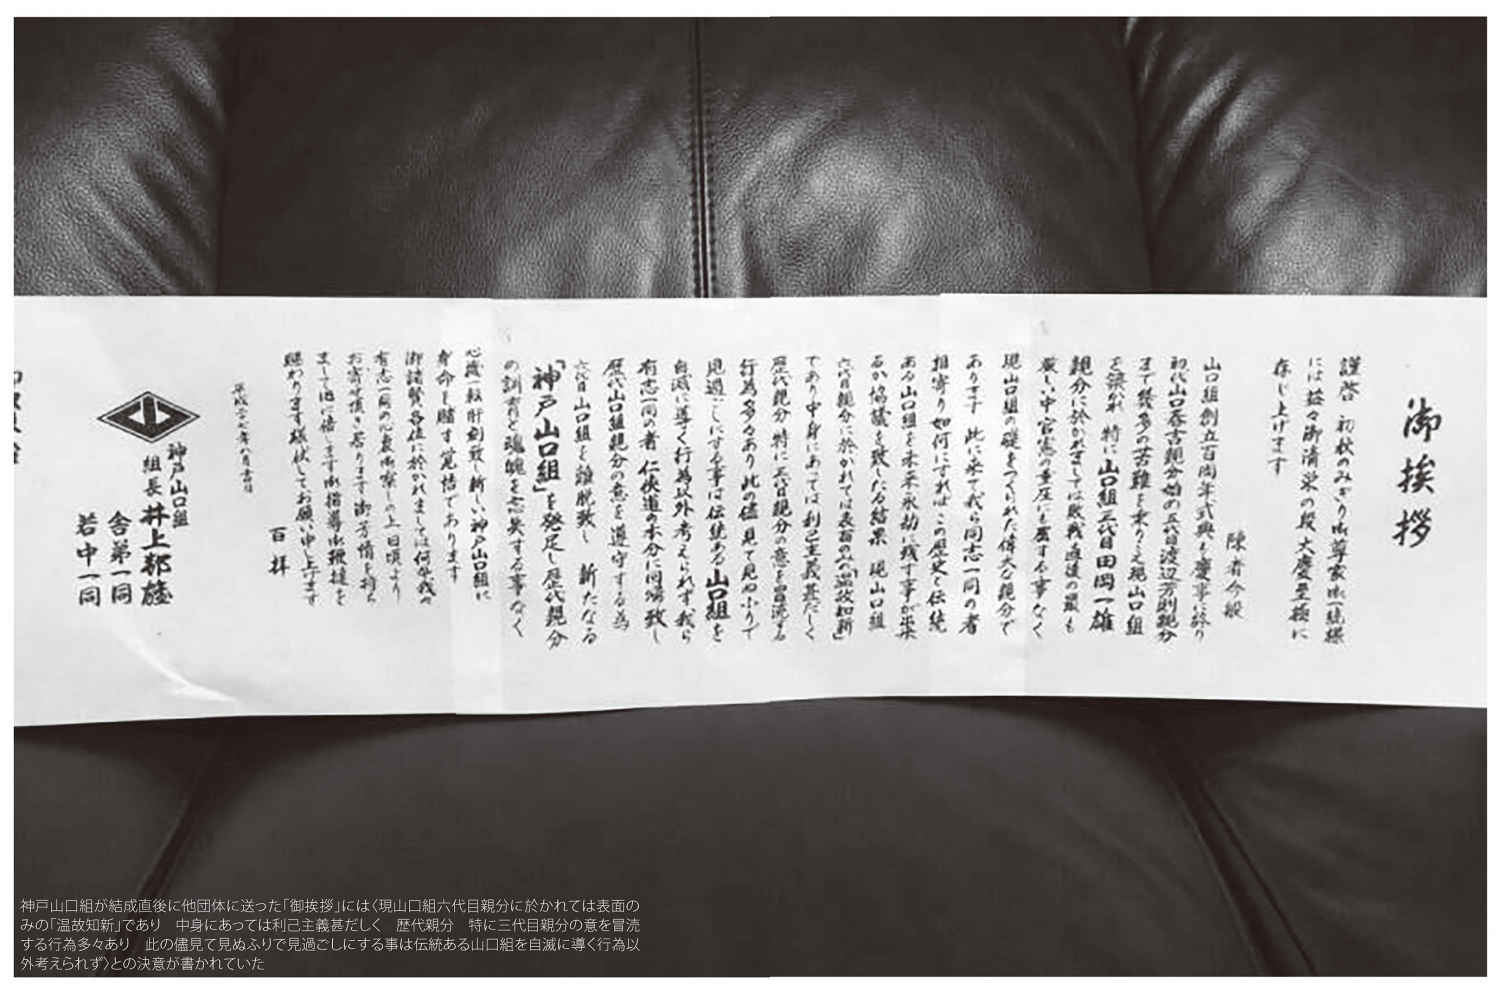 御挨拶
謹啓 初秋のみぎり御尊家御一統様
には益々御清栄の段 大慶至極に
存じ上げます
陳者今般
山口組創立百周年式典を慶事に終り
初代山口春吉親分始め五代目渡辺芳則親分
まで幾多の苦難を乗りこえ現山口組
を築かれ 特に山口組三代目田岡一雄
親分に於かれましては敗戦直後の最も
厳しい中官憲の重圧にも屈する事なく
現山口組の礎をつくられた偉大な親分で
あります 此に来て我ら同志一同の者
相寄り如何にすればこの歴史と伝統
ある山口組を未来永劫に残す事が出来
るか協議を致したる結果 現山口組
六代目親分に於かれては表面のみの「温故知新」
であり中身にあっては利己主義甚だしく
歴代親分 特に三代目親分の意を冒涜する
行為多々あり 此の儘見て見ぬふりで
見過ごしにする事は伝統ある山口組を
自滅に導く行為以外考えられず我ら
有志一同の者 仁侠道の本分に回帰致し
歴代山口組親分の意を遵守する為
六代目山口組を離脱致し 新たなる
「神戸山口組」を発足し歴代親分
の訓育と魂魄を忘失する事なく
心機一転肝刻致し新しい神戸山口組に
身命を賭す覚悟であります
御諸賢各位に於かれましては何卒我々
有志一同の心衷御察しの上日頃より
お寄せ頂き居ります御芳情を持ち
まして旧に倍します御指導御鞭撻を
賜わります様伏してお願い申し上げます
百拝
平成二十七年九月吉日
神戸山口組
組長 井上邦雄
舎弟一同
若中一同
神戸山口組が結成直後に他団体に送った「御挨拶」には〈現山口組六代目親分に於かれては表面の
みの「温故知新」であり 中身にあっては利己主義甚だしく 歴代親分 特に三代目親分の意を冒涜
する行為多々あり 此の儘見て見ぬふりで見過ごしにする事は伝統ある山口組を自滅に導く行為以
外考えられず〉との決意が書かれていた